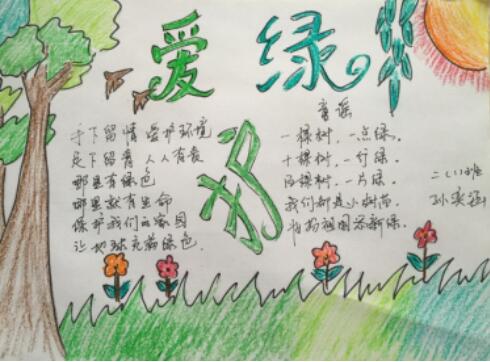 爱绿护
手下留情 爱护环境
足下留青 人人有责
哪里有绿色
哪里就有生命
保护我们的家园
让地球充满绿色
童谣
一棵树，一点绿，
十棵树，一行绿，
百棵树，一片绿。
我们都是小树苗，
为祖国添新绿。
二(1)班